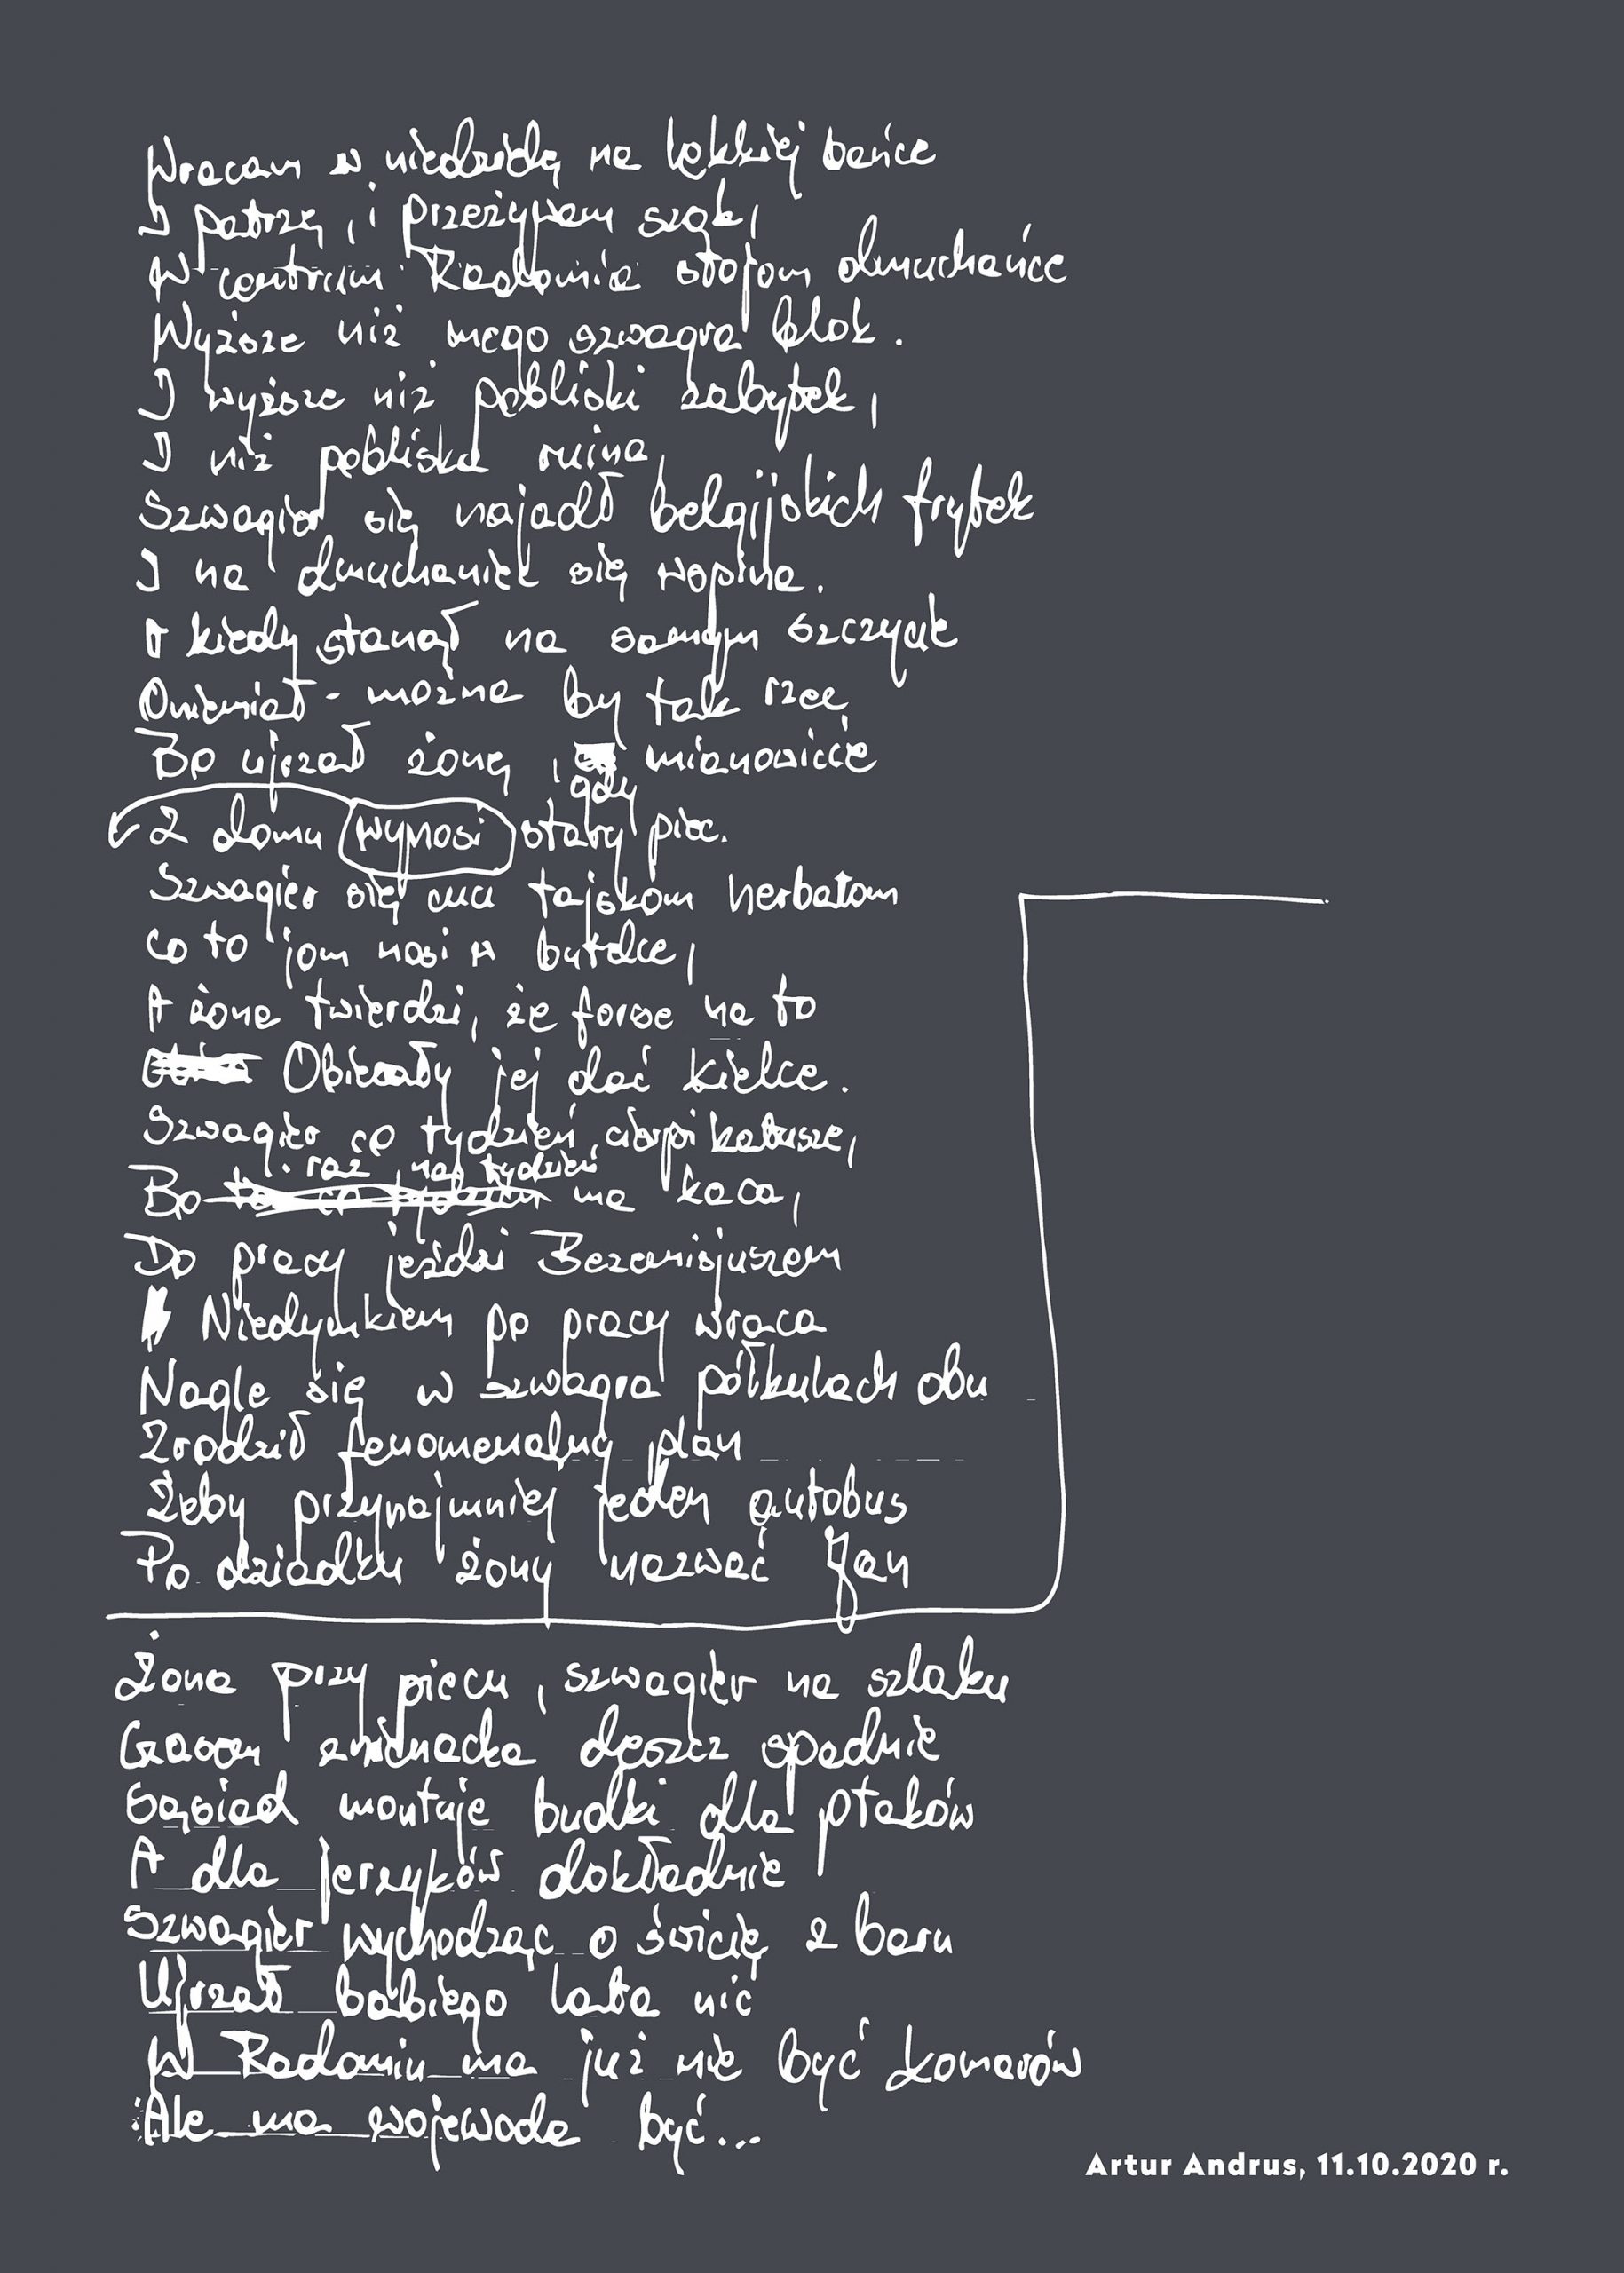 Wracam w niedzielę na lekkiej bańce
I patrzę, i przeżywam szok,
W centrum Radomia stojom dmuchańce
Wyższe niż mego szwagra blok.
I wyższe niż pobliski zabytek,
I niż pobliska ruina,
Szwagier się najadł belgijskich frytek
I na dmuchaniec się wspina.
A kiedy stanął na samym szczycie
Oniemiał - można by tak rzec,
Bo ujrzał żonę, mianowicie
gdy
Z domu wynosi stary piec.
Szwagier się cuci tajskom herbatom
Co to jom nosi w butelce,
A żona twierdzi, że forse na to
Obiecały jej dać Kielce.
Szwagier co tydzień cierpi katusze,
raz na tydzień
Bo ma kaca,
Do pracy jeździ Bezemisjuszem
Niedymkiem po pracy wraca
Nagle się w szwagra półkulach obu
Zrodził fenomenalny plan
Żeby przynajmniej jeden autobus
Po dziadku żony nazwać Jan
Żona przy piecu, szwagier na szlaku
Czasem znienacka deszcz spadnie
Sąsiad montuje budki dla ptaków
A dla jerzyków dokładnie
Szwagier wychodząc o świcie z baru
Ujrzał babiego lata nić
W Radomiu ma już nie być komarów
Ale ma wojewoda być...
Artur Andrus, 11.10.2020 r.